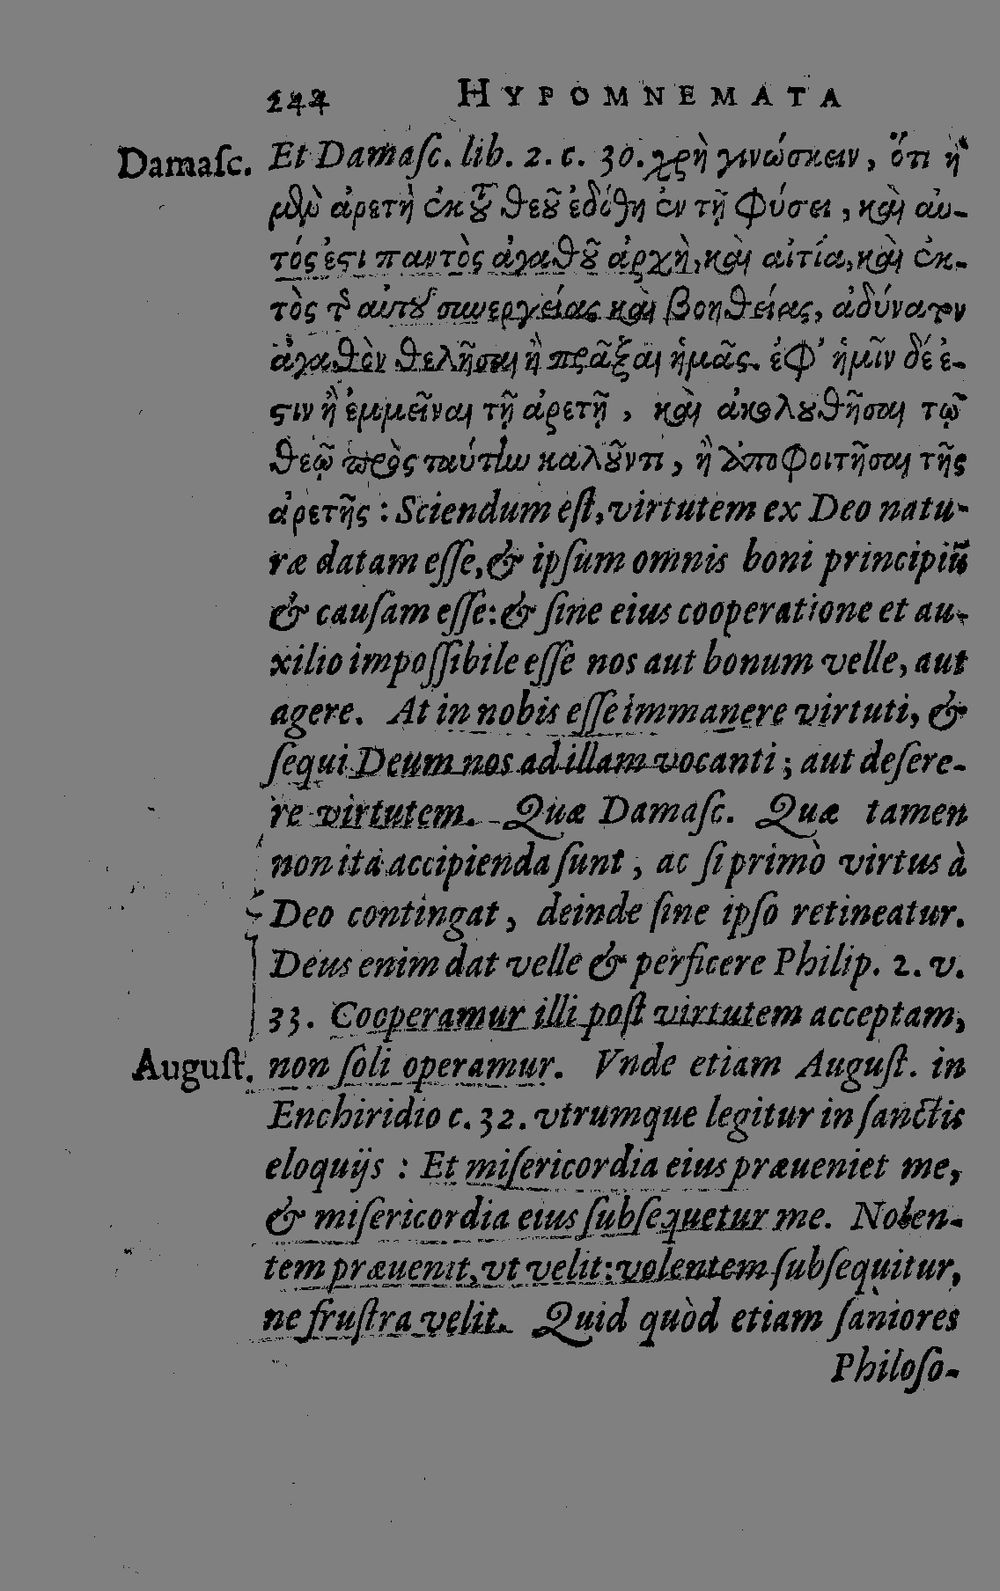 244 HYPOMNEMATA
Damaſc. Et Damaſc. lib. 2. c. 30. χρὴ γινώσκειν, ὅτι ἡ
μὲν ἀρετὴ ἐκ τοῦ θεοῦ ἐδόθη ἐν τῇ φύσει, καὶ αὐ-
τός ἐστι παντὸς ἀγαθοῦ ἀρχὴ, καὶ αἰτία, καὶ ἐκ-
τὸς τῆς αὐτοῦ συνεργείας καὶ βοηθείας, ἀδύνατον
ἀγαθὸν θελῆσαι ἢ πρᾶξαι ἡμᾶς. ἐφ’ ἡμῖν δέ ἐ-
στιν ἢ ἐμμεῖναι τῇ ἀρετῇ, καὶ ἀκολουθῆσαι τῷ
θεῷ πρὸς ταύτην καλοῦντι, ἢ ἀποφοιτῆσαι τῆς
ἀρετῆς : Sciendum eſt, virtutem ex Deo natu-
ræ datam eſſe, & ipſum omnis boni principiũ
& cauſam eſſe: & ſine eius cooperatione et au-
xilio impoſſibile eſſe nos aut bonum velle, aut
agere. At in nobis eſſe immanere virtuti, &
ſequi Deum nos ad illam vocanti ; aut deſere-
re virtutem. Quæ Damaſc. Quæ tamen
non ita accipienda ſunt, ac ſi primò virtus à
Deo contingat, deinde ſine ipſo retineatur.
Deus enim dat velle & perficere Philip. 2. v.
33. Cooperamur illi poſt virtutem acceptam,
Auguſt. non ſoli operamur. Vnde etiam Auguſt. in
Enchiridio c. 32. vtrumque legitur in ſanctis
eloquijs : Et miſericordia eius præueniet me,
& miſericordia eius ſubſequetur me. Nolen-
tem præuenit, vt velit: volentem ſubſequitur,
ne fruſtra velit. Quid quòd etiam ſaniores
Philoſo-